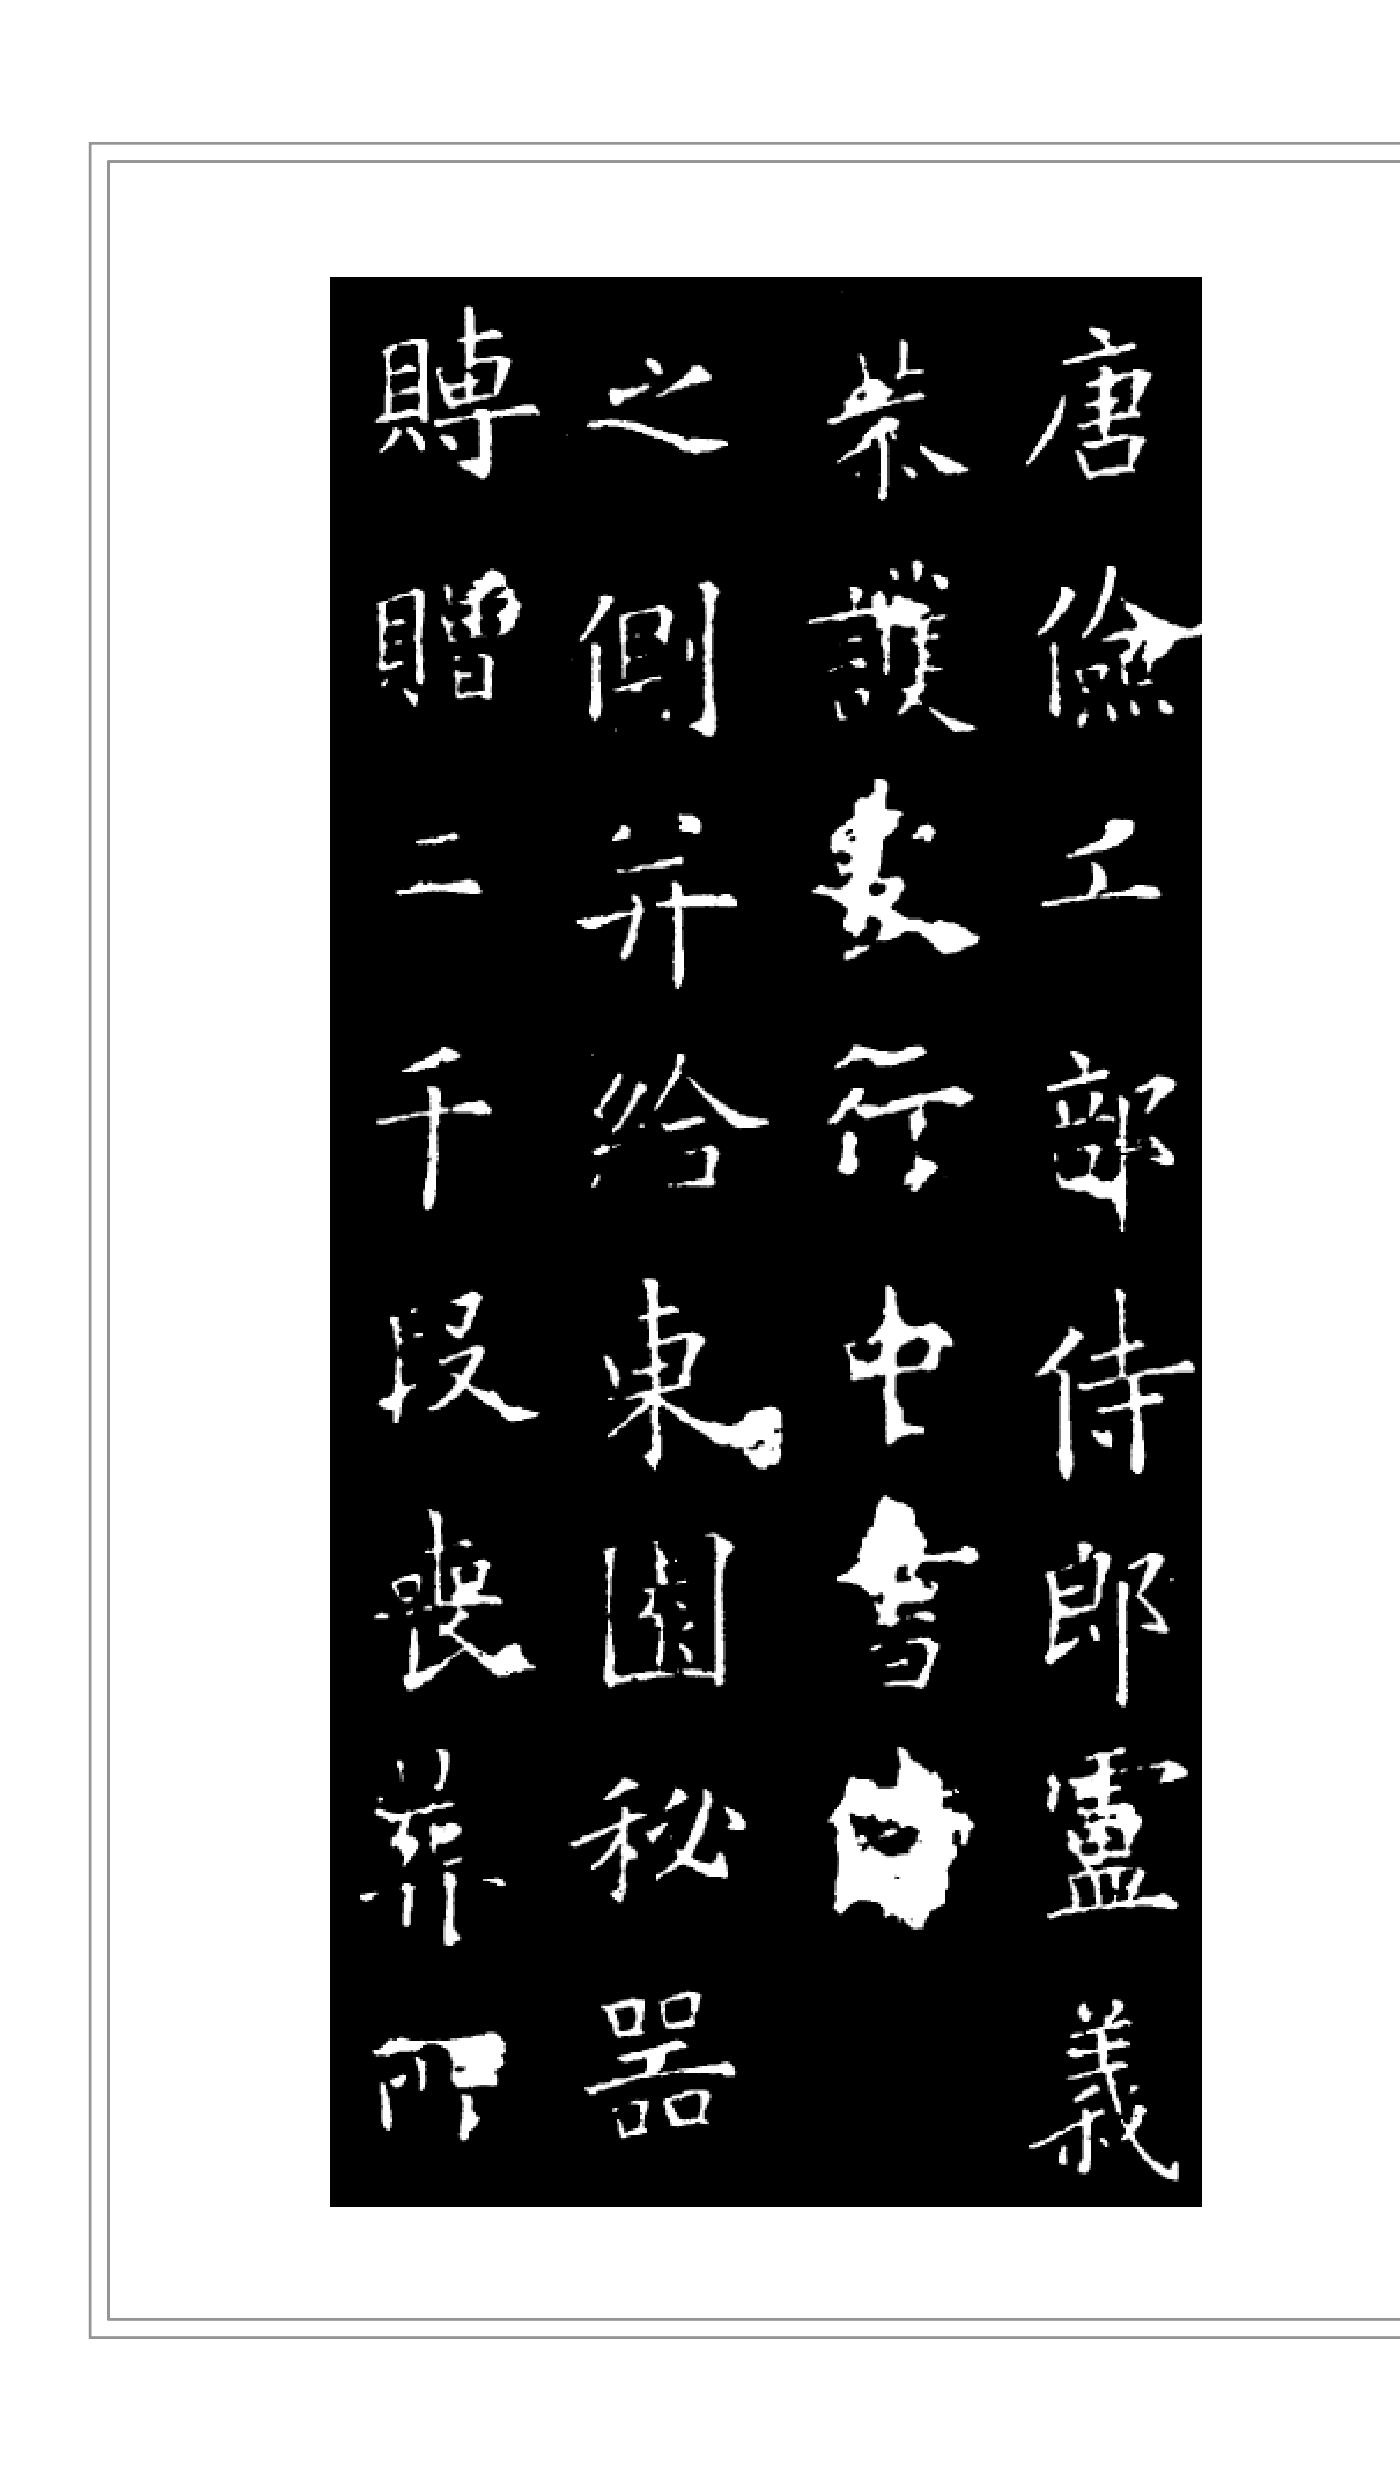 唐儉工部侍郎盧義
恭護行中書
之側并給東園秘器
賻贈二千段喪葬所